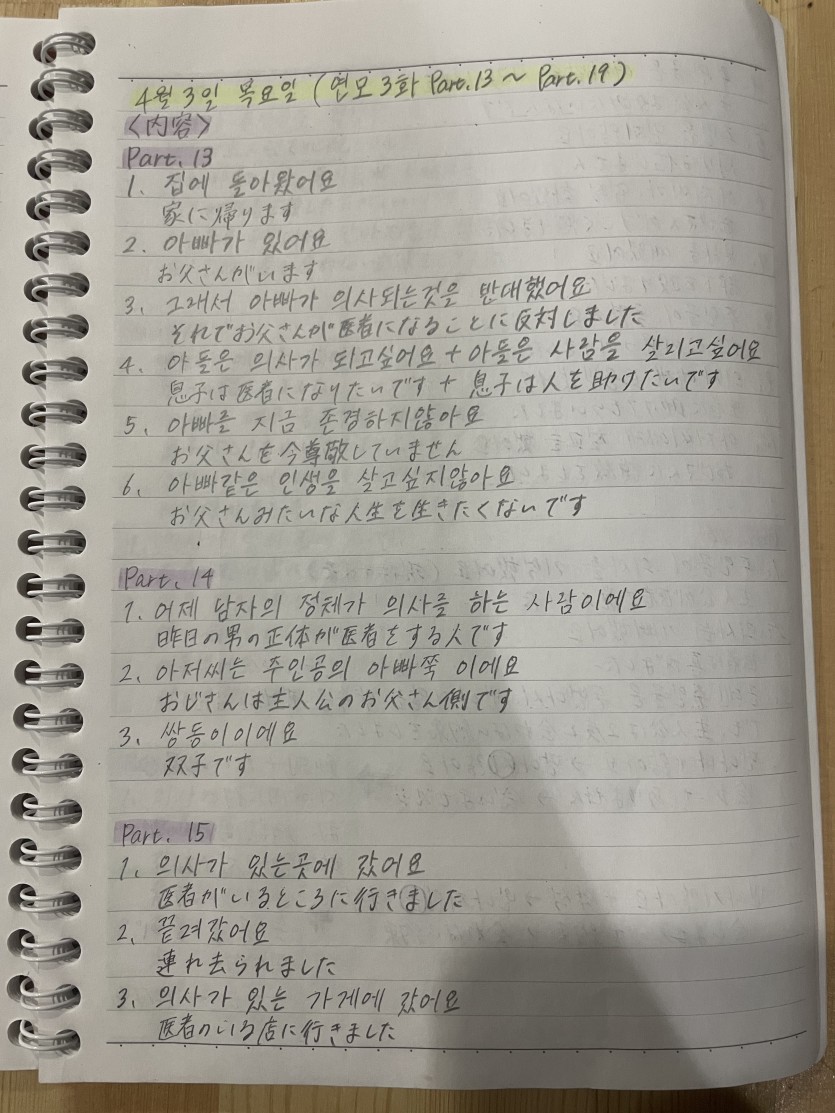 4월 3일 목요일 (연모 3화 Part.13 ~ Part.19)
<内容>
Part.13
1. 집에 돌아왔어요
家に帰ります
2. 아빠가 있어요
お父さんがいます
3. 그래서 아빠가 의사되는것은 반대했어요
それでお父さんが医者になることに反対しました
4. 아들은 의사가 되고싶어요 + 아들은 사람을 살리고싶어요
息子は医者になりたいです + 息子は人を助けたいです
5. 아빠를 지금 존경하지않아요
お父さんを今尊敬していません
6. 아빠같은 인생을 살고싶지않아요
お父さんみたいな人生を生きたくないです
Part.14
1. 어제 남자의 정체가 의사를 하는 사람이에요
昨日の男の正体が医者をする人です
2. 아저씨는 주인공의 아빠쪽 이에요
おじさんは主人公のお父さん側です
3. 쌍둥이이에요
双子です
Part. 15
1. 의사가 있는곳에 갔어요
医者がいるところに行きました
2. 끝려갔어요
連れ去られました
3. 의사가 있는 가게에 갔어요
医者のいる店に行きました